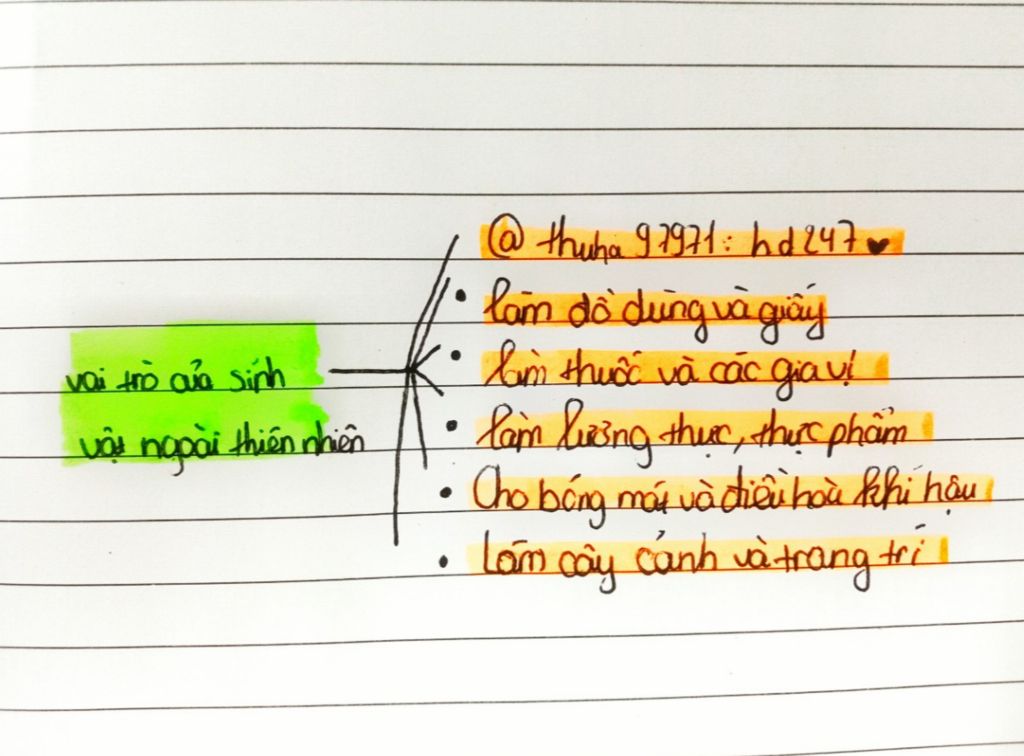 vai trò của sinh
vật ngoài thiên nhiên
@ thuha 97971: hd247
• làm đồ dùng và giấy
• làm thuốc và các gia vị
• làm lương thực, thực phẩm
• Cho bóng mát và điều hoà khí hậu
• Làm cây cảnh và trang trí